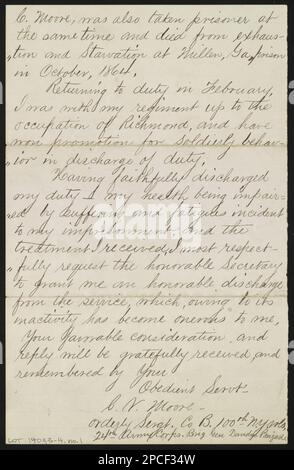 C. Moore, was also taken prisoner at
the same time and died from exhaus-
"tion and starvation at Millen, Ga, prison
in October, 1864.
Returning to duty in February,
I was with my regiment up to the
occupation of Richmond, and have
won promotion for Soldierly behav-
"ior in discharge of duty.
Having faithfully discharged
my duty & my health being impair-
ed by suffering and fatigues incident
to my imprisonment and the
treatment I received, I most respect-
"fully request the honorable Secretary
to grant me an honorable discharge
from the service, which, owing to its
inactivity has become onerous to me,
Your favorable consideration and
reply will be gratefully received and
remembered by Your
Obedient Servt-
C. N. Moore-
orderly Sergt. Co B. 100th N.Y. vols.
24th Army Corps. Brig Gen Dandy's Brigade
LOT 14043-4, no. 1
alamy
Image ID: 2FCF34W
www.alamy.com